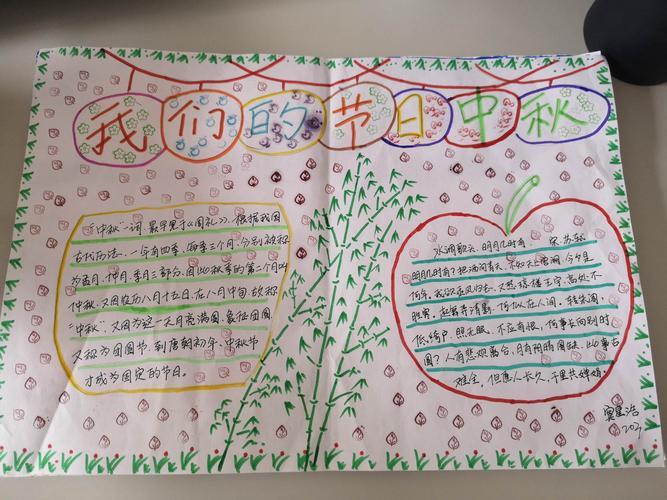 我们的节日中秋
"中秋"一词,最早见于《周礼》。根据我国
古代历法,一年有四季,每季三个月,分别被称
为孟月、仲月、季月三部分,因此秋季的第二个月叫
仲秋,又因农历八月十五日,在八月中旬,故称
"中秋"。又因为这一天月亮满圆,象征团圆,
又称为团圆节,到唐朝初年,中秋节
才成为固定的节日。
水调歌头·明月几时有 宋 苏轼
明月几时有?把酒问青天。不知天上宫阙,今夕是
何年。我欲乘风归去,又恐琼楼玉宇,高处不
胜寒。起舞弄清影,何似在人间。转朱阁,
低绮户,照无眠。不应有恨,何事长向别时
圆?人有悲欢离合,月有阴晴圆缺,此事古
难全。但愿人长久,千里共婵娟。
浩